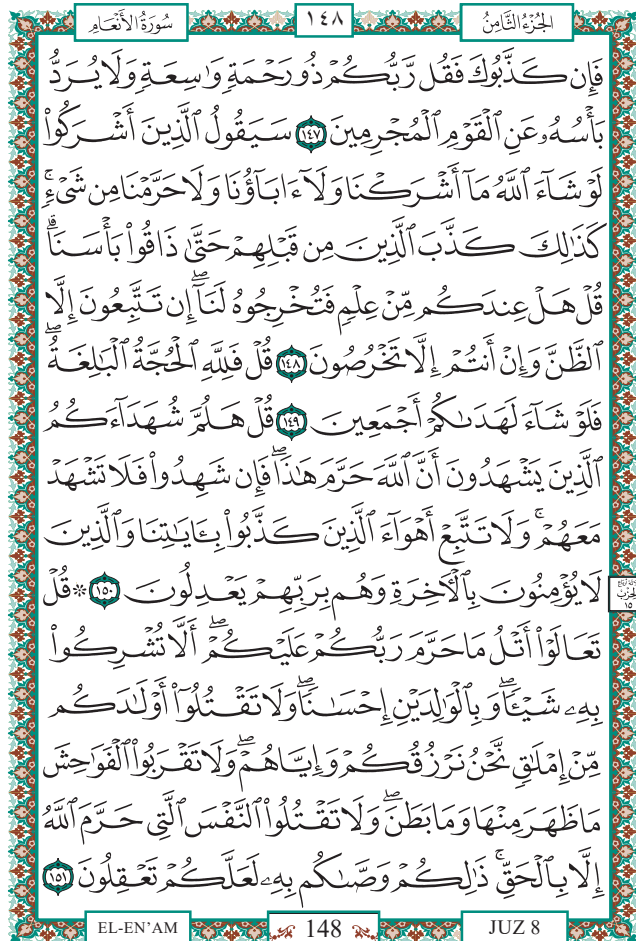 سُورَةُ الأَنْعَامِ ١٤٨ الجُزْءُ الثَّامِنُ
فَإِن كَذَّبُوكَ فَقُل رَّبُّكُمْ ذُو رَحْمَةٍ وَٰسِعَةٍ وَلَا يُرَدُّ
بَأْسُهُۥ عَنِ ٱلْقَوْمِ ٱلْمُجْرِمِينَ ١٤٧ سَيَقُولُ ٱلَّذِينَ أَشْرَكُوا۟
لَوْ شَآءَ ٱللَّهُ مَآ أَشْرَكْنَا وَلَآ ءَابَآؤُنَا وَلَا حَرَّمْنَا مِن شَىْءٍ ۚ
كَذَٰلِكَ كَذَّبَ ٱلَّذِينَ مِن قَبْلِهِمْ حَتَّىٰ ذَاقُوا۟ بَأْسَنَا ۗ
قُلْ هَلْ عِندَكُم مِّنْ عِلْمٍ فَتُخْرِجُوهُ لَنَآ ۖ إِن تَتَّبِعُونَ إِلَّا
ٱلظَّنَّ وَإِنْ أَنتُمْ إِلَّا تَخْرُصُونَ ١٤٨ قُلْ فَلِلَّهِ ٱلْحُجَّةُ ٱلْبَٰلِغَةُ ۖ
فَلَوْ شَآءَ لَهَدَىٰكُمْ أَجْمَعِينَ ١٤٩ قُلْ هَلُمَّ شُهَدَآءَكُمُ
ٱلَّذِينَ يَشْهَدُونَ أَنَّ ٱللَّهَ حَرَّمَ هَٰذَا ۖ فَإِن شَهِدُوا۟ فَلَا تَشْهَدْ
مَعَهُمْ ۚ وَلَا تَتَّبِعْ أَهْوَآءَ ٱلَّذِينَ كَذَّبُوا۟ بِـَٔايَٰتِنَا وَٱلَّذِينَ
لَا يُؤْمِنُونَ بِٱلْـَٔاخِرَةِ وَهُم بِرَبِّهِمْ يَعْدِلُونَ ١٥٠ ۞ قُلْ
تَعَالَوْا۟ أَتْلُ مَا حَرَّمَ رَبُّكُمْ عَلَيْكُمْ ۖ أَلَّا تُشْرِكُوا۟
بِهِۦ شَيْـًٔا ۖ وَبِٱلْوَٰلِدَيْنِ إِحْسَٰنًا ۖ وَلَا تَقْتُلُوٓا۟ أَوْلَٰدَكُم
مِّنْ إِمْلَٰقٍ ۖ نَّحْنُ نَرْزُقُكُمْ وَإِيَّاهُمْ ۖ وَلَا تَقْرَبُوا۟ ٱلْفَوَٰحِشَ
مَا ظَهَرَ مِنْهَا وَمَا بَطَنَ ۖ وَلَا تَقْتُلُوا۟ ٱلنَّفْسَ ٱلَّتِى حَرَّمَ ٱللَّهُ
إِلَّا بِٱلْحَقِّ ۚ ذَٰلِكُمْ وَصَّىٰكُم بِهِۦ لَعَلَّكُمْ تَعْقِلُونَ ١٥١
الحِزْبُ
١٥
EL-EN'AM 148 JUZ 8